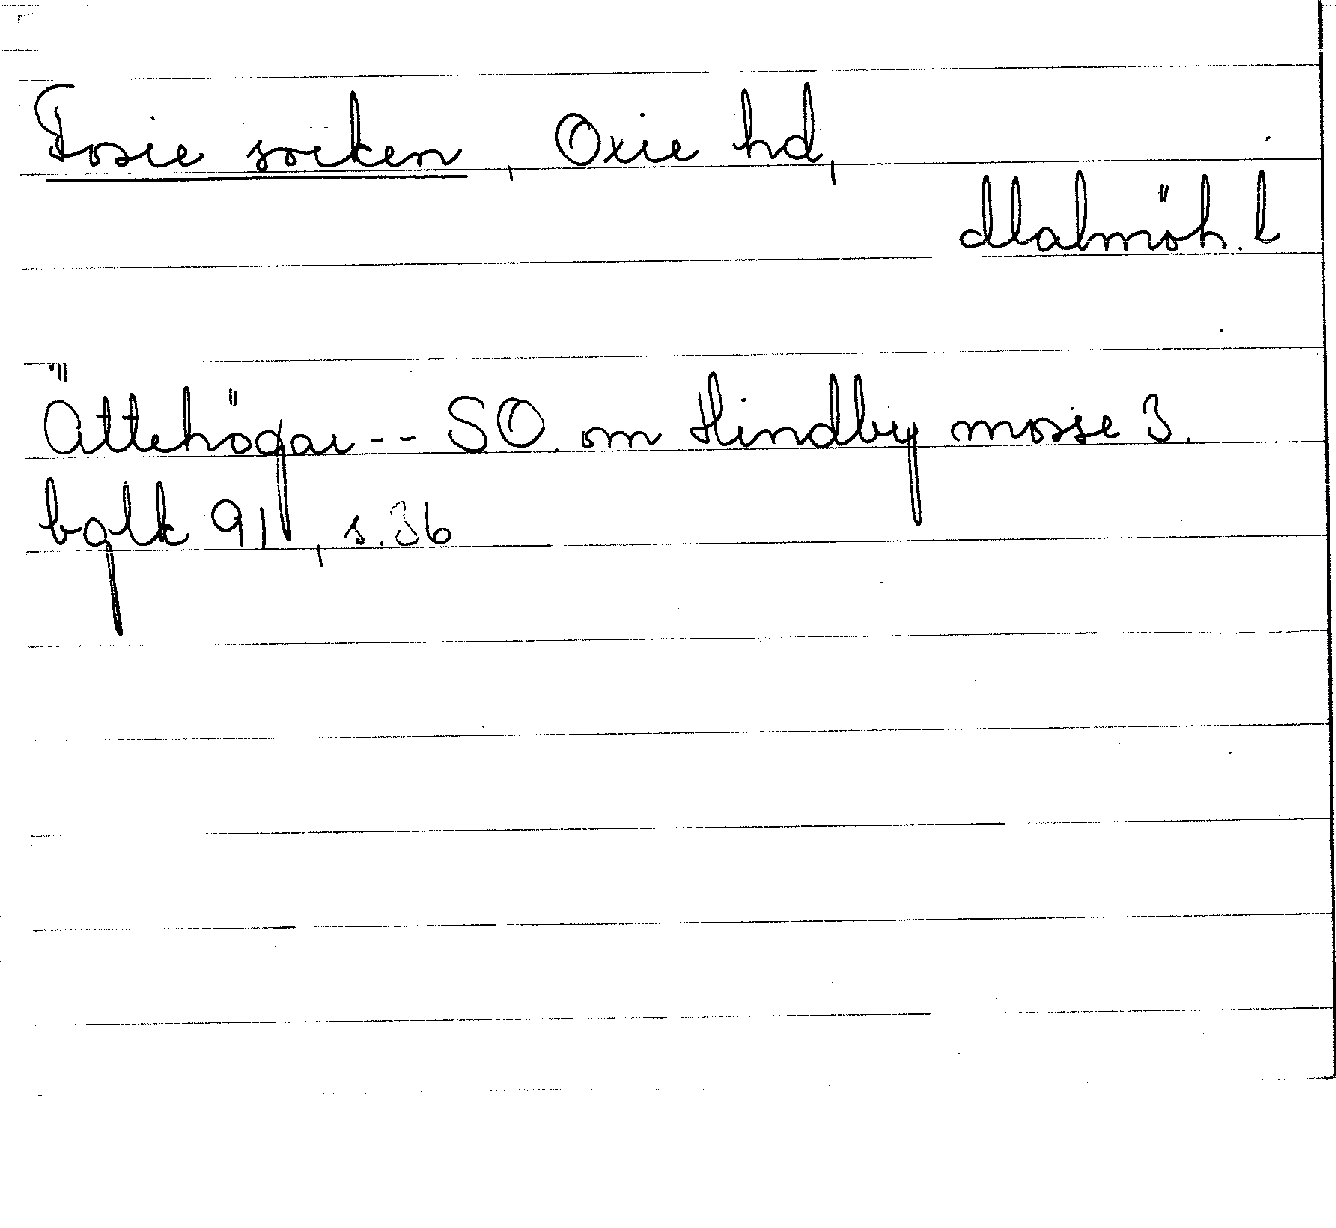 Fosie socken, Oxie hd,
Malmöh. l
Ättehögar-- SO. om Hindby mosse 3.
bglk 91, s. 36